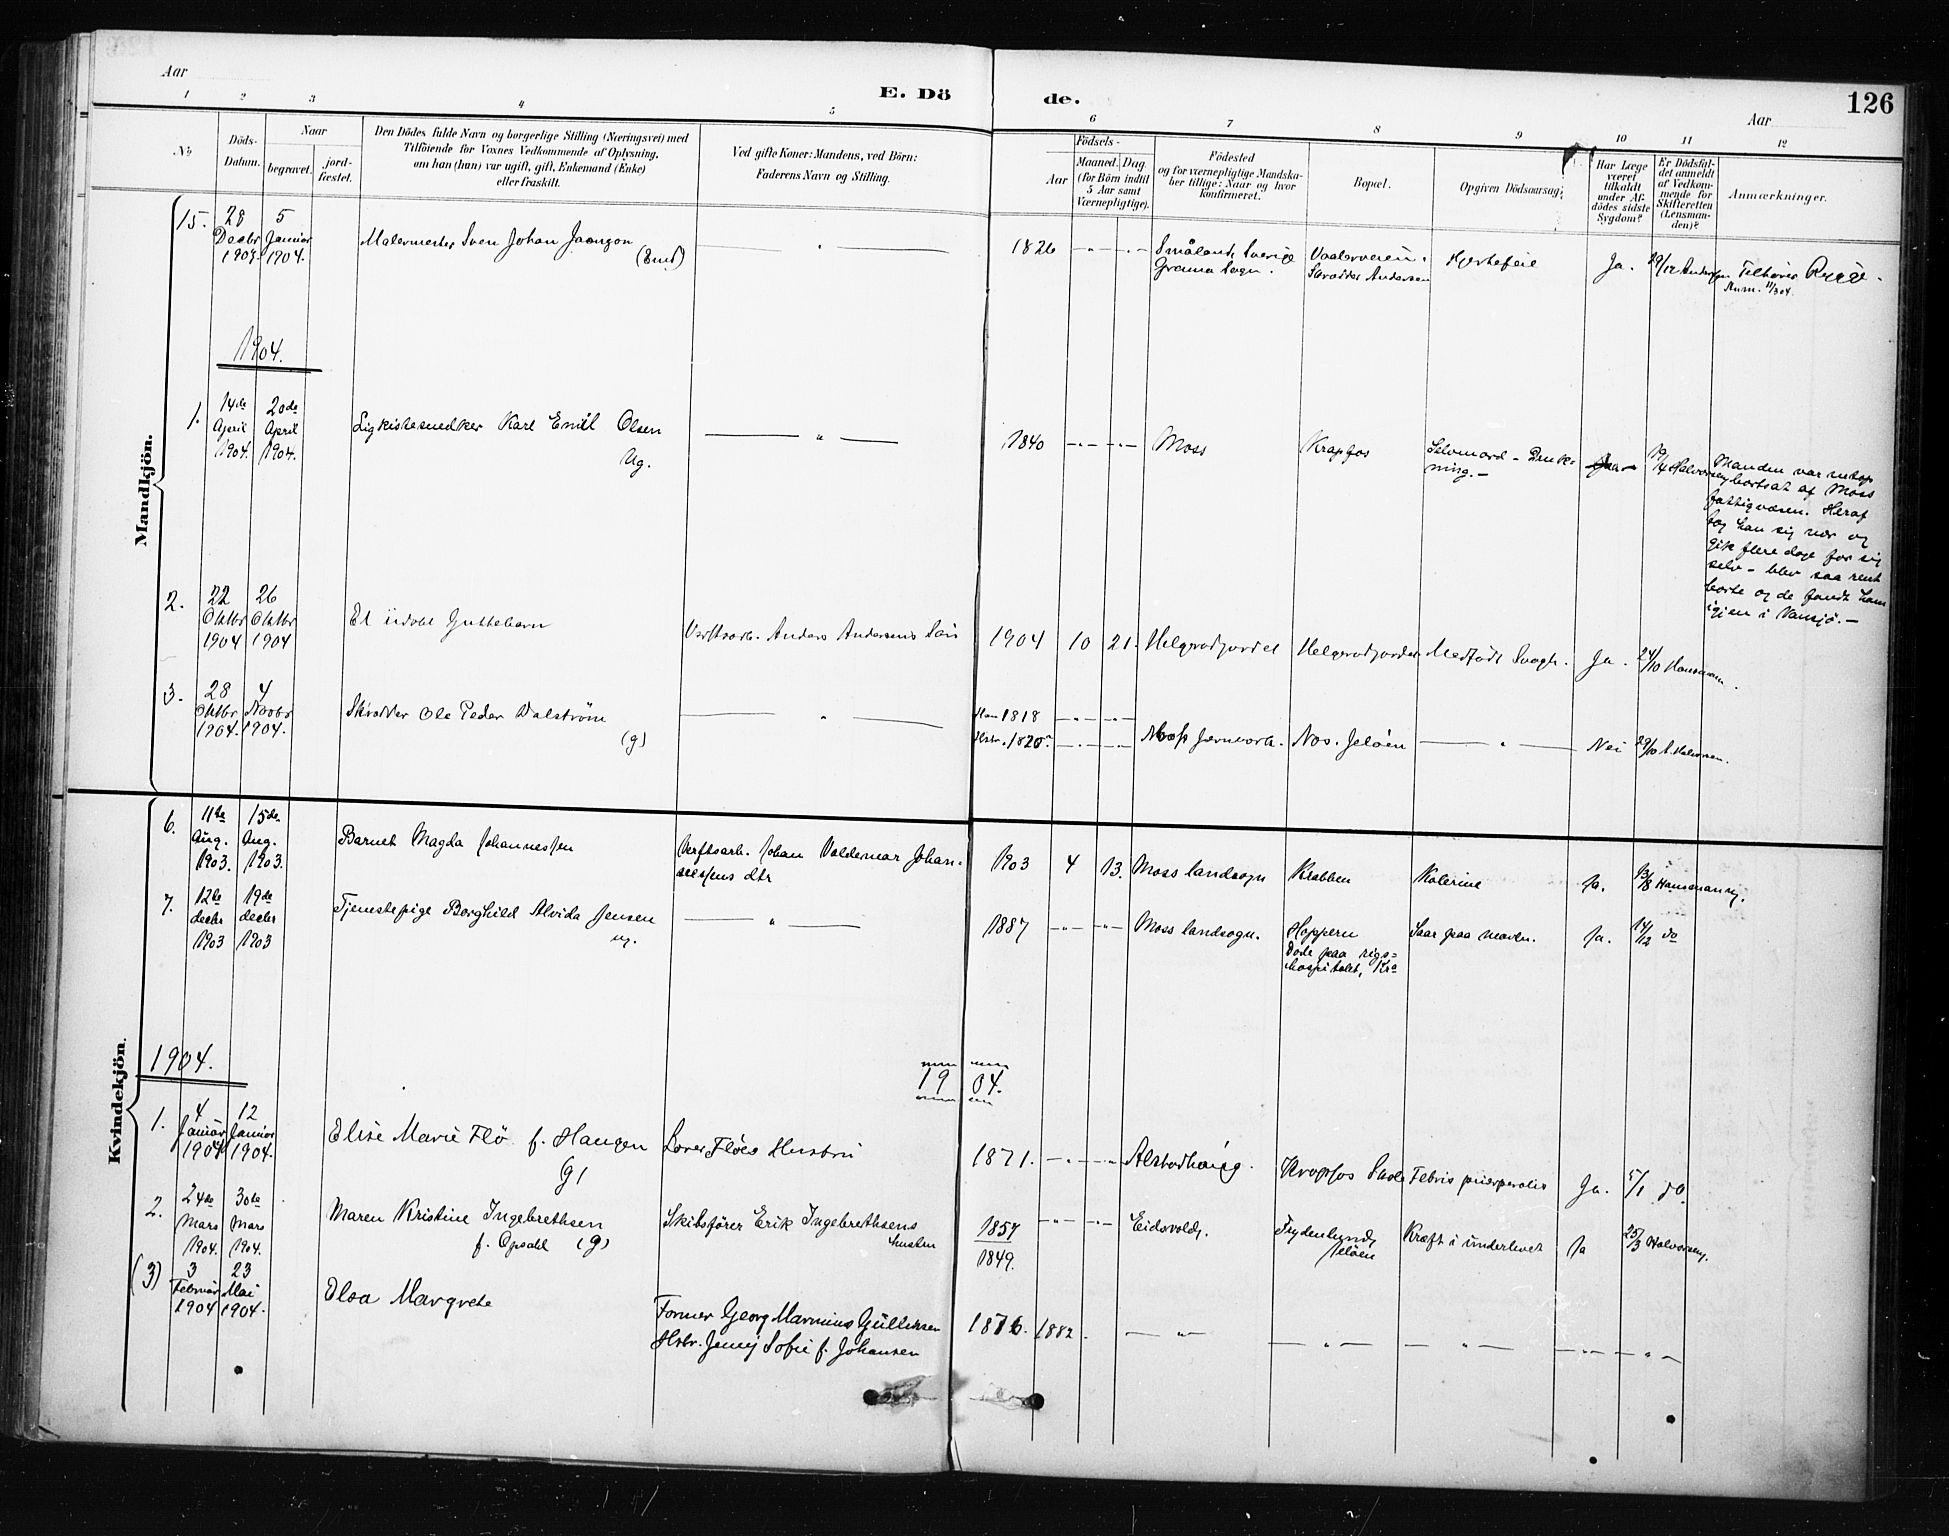 126
Aar
E. Dö de.
Aar
1 2 3 4 5 6 7 8 9 10 11 12
No
Döds-
Datum.
Naar
begravet.
jord-
fæstet.
Den Dödes fulde Navn og borgerlige Stilling (Næringsvei) med
Tilföiende for Voxnes Vedkommende af Oplysning,
om han (hun) var ugift, gift, Enkemand (Enke)
eller fraskilt.
Ved gifte Koner: Mandens, ved Börn:
Faderens Navn og Stilling.
Födsels-
Aar
Maaned. Dag
(for Börn indtil
5 Aar samt
Værnepligtige).
Födested
og for værnepligtige Mandska-
ber tillige: Naar og hvor
konfirmeret.
Bopæl.
Opgiven Dödsaarsag.
Har Læge
været
tilkaldt
under Af-
dödes sidste
Sygdom?
Er Dödsfal-
det anmeldt
af Vedkom-
mende for
Skifteretten
(Lensman-
den)?
Anmærkninger.
Mandkjön.
15. 28 Decbr 1903. 5 Januar 1904. Malermester Sven Johan (Enk) — " — 1826 -"- -"- Småland, Sverige Sogn. Vaalerveien. Andersen Hjertefeil Ja. 29/12 Tilhører Rygge.
Anm. 11/3 04.
1904.
1. 14de April 1904. 20de April 1904. Ligkistesnedker Karl Emil Olsen Ug. — " — 1840 -"- -"- Moss Krapfos Selvmord - Drukning.- 19/4 Halvorsen
Manden var netop
bortsat af Moss
fattigvæsen. Heraf
tog han sig nær og
gik flere dage for sig
selv - blev saa rent
borte og de fandt ham
igjen i Vansjö.-
2. 22 Oktbr 1904 26 Oktbr 1904 Et udøbt Guttebarn Verftsarb. Anders Andersens Sön 1904 10 21. Helgerødjordet Helgerødjordet Medfödt Svagh. Ja. 24/10 Hansmann.
3. 28 Oktbr 1904. 4 Novbr 1904. Skrædder Ole Peder Dalström (g) — " — Han 1818 Hstr. 1820. -"- -"- Moss Jernverk. Nos. Jelöen — " — Nei 29/10 A. Halvorsen.
Kvindekjön.
6. 11te Aug. 1903. 15de Aug. 1903. Barnet Magda Johannessen Verftsarb. Johan Valdemar Johan-
nessens dtr 1903 4 13. Moss landsogn Krabben Kolerine Ja. 13/8 Hansmann.
7. 12te decbr 1903 19de decbr 1903 Tjenestepige Borghild Alvida Jensen ug. — " — 1887 -"- -"- Moss landsogn. Hoppern
Döde paa rigs-
hospitalet, Kra Saar paa maven. Ja. 14/12 do
1904.
1904.
1. 4 Januar 1904 12 Januar 1904. Elise Marie Flö f. Haugen (g) Flöes Hustru 1871. -"- -"- Alstadhaug. Krapfos Febris puerperalis Ja. 5/1 do
2. 24de Mars 1904. 30te Mars 1904. Maren Kristine Ingebrethsen
f. Opsahl (g) Skibsförer Erik Ingebrethsens
hustru 1857
1849. -"- -"- Eidsvold. Frydenlund,
Jelöen Kræft i underlivet Ja 25/3 Halvorsen.
(3) 3 Februar 1904 23 Mai 1904. Elsa Margrete Former Georg Marinius Gulliksen
Hstr. Jenny Sofie f. Johansen 1876. 1882. — " — — " — — " — -"- -"-